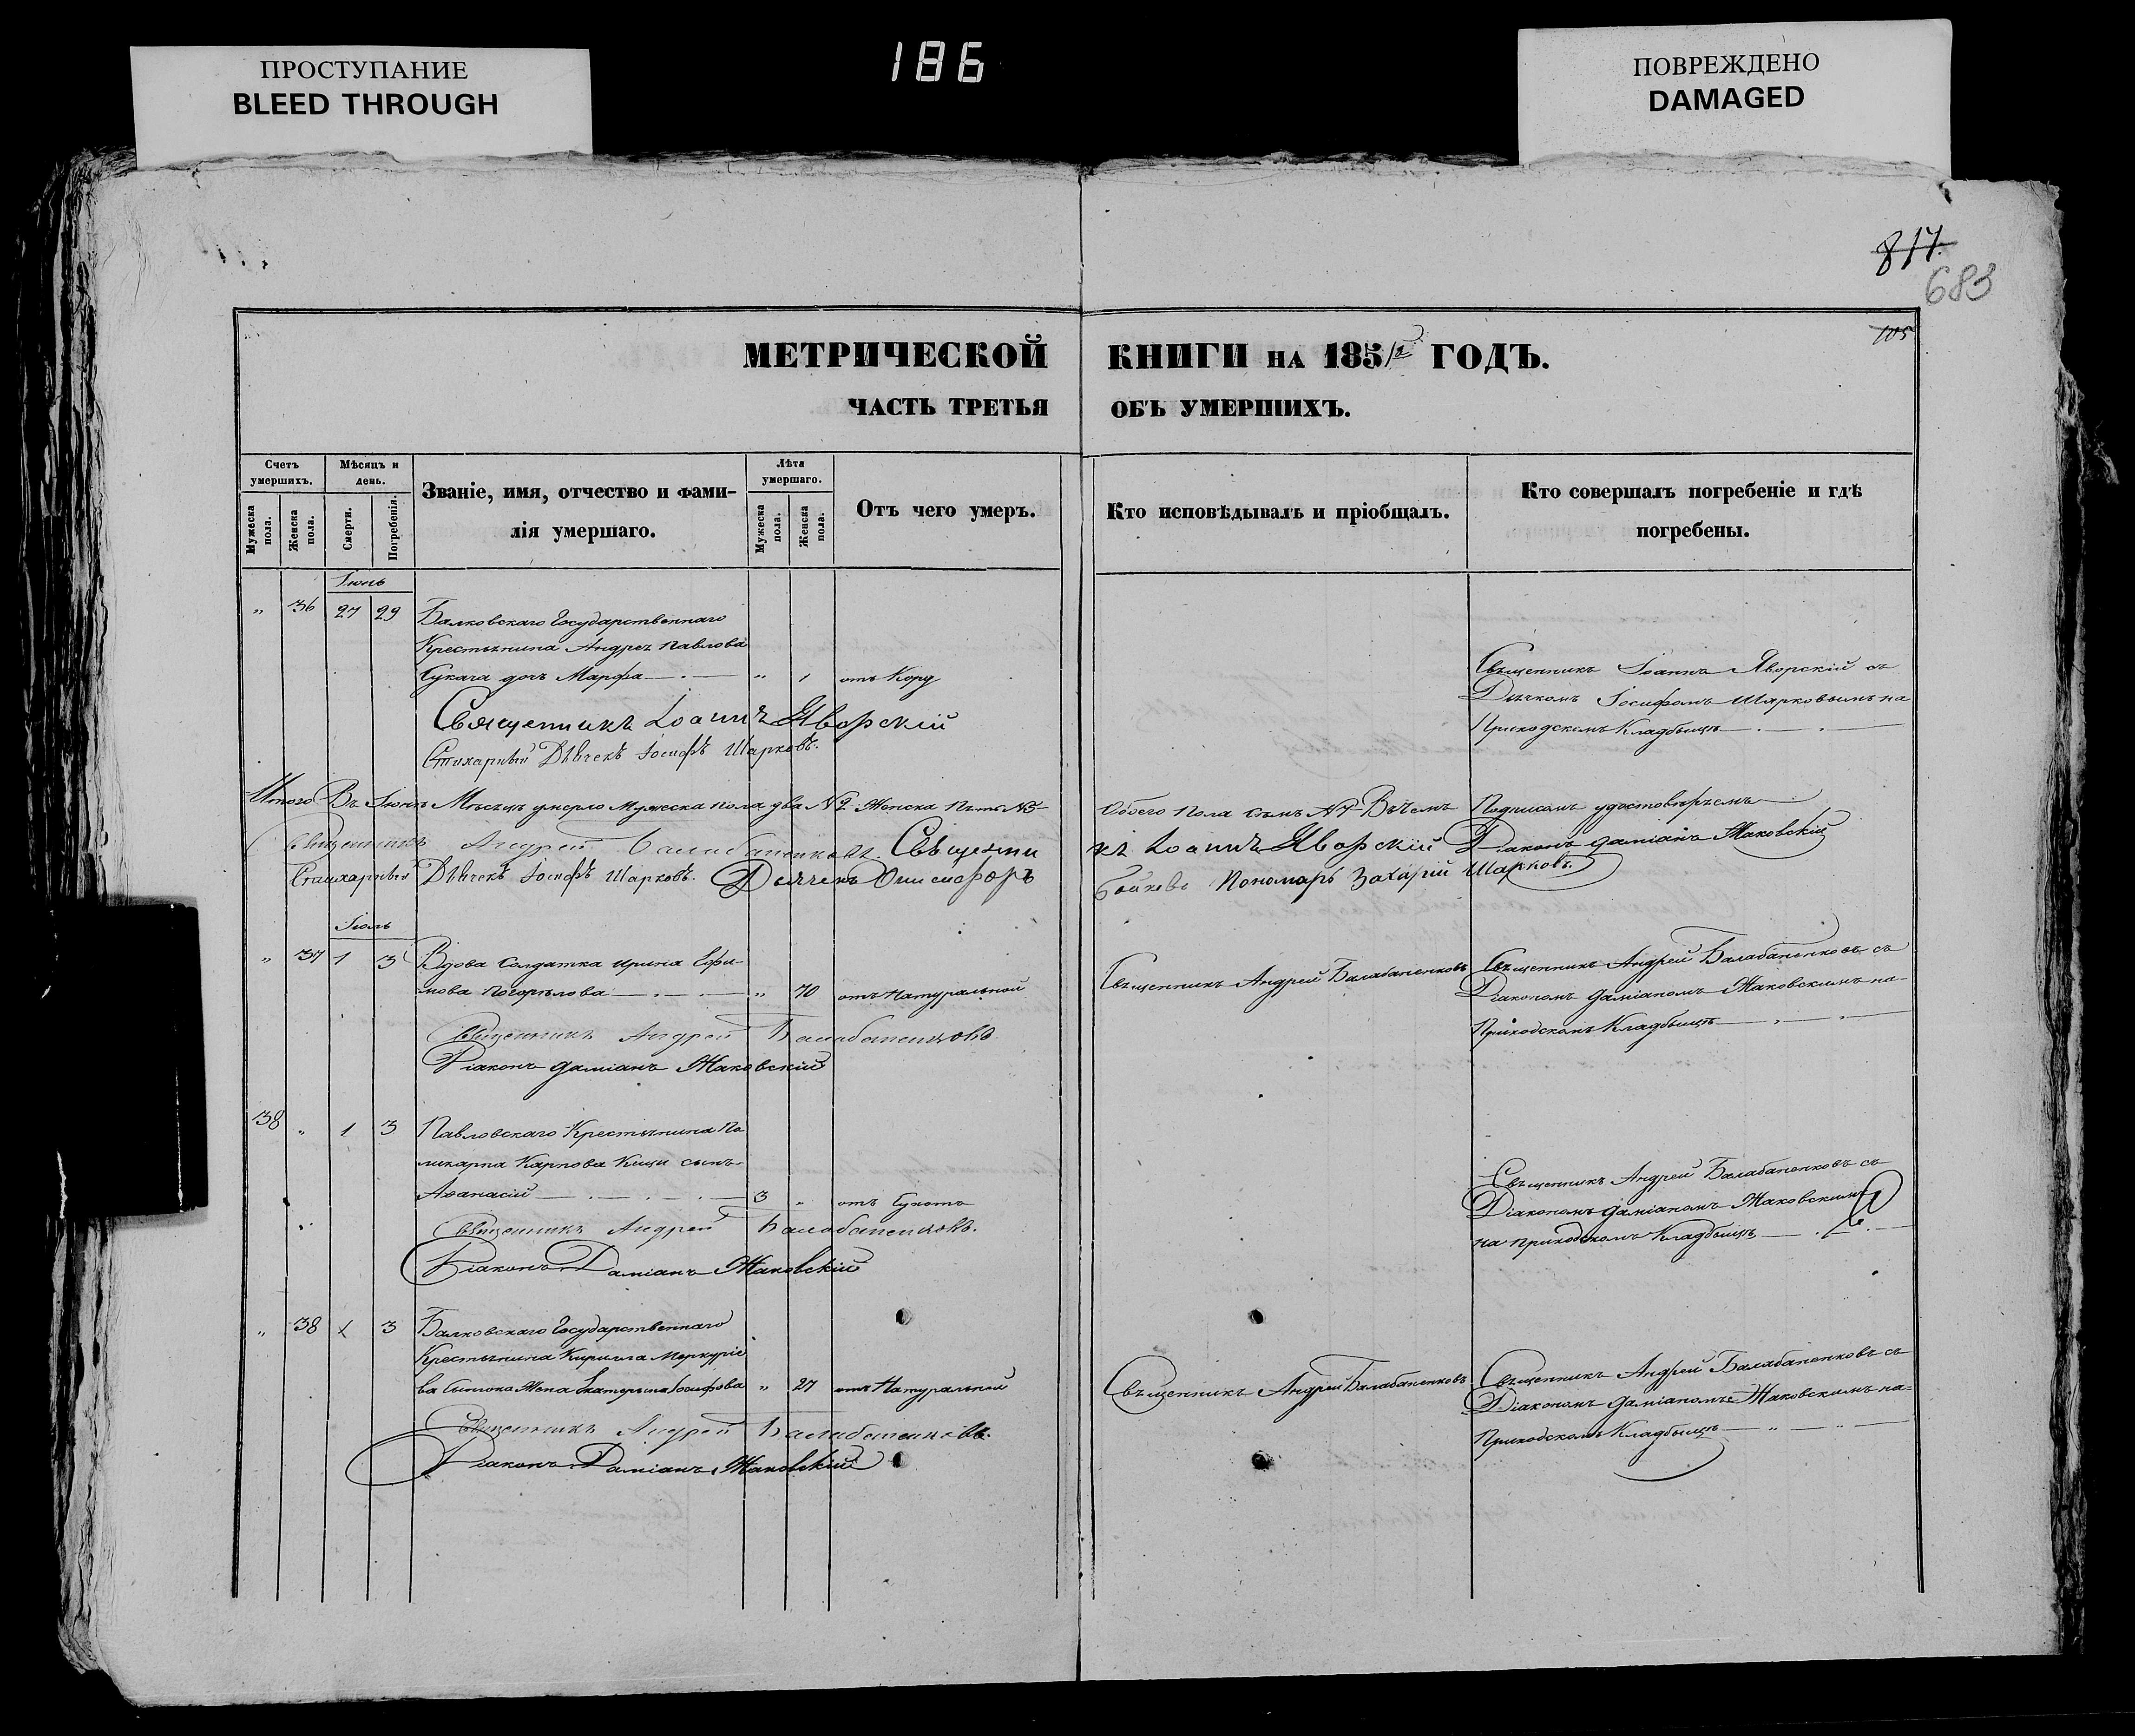 ПРОСТУПАНИЕ
BLEED THROUGH
186
ПОВРЕЖДЕНО
DAMAGED
817.
683
105
МЕТРИЧЕСКОЙ КНИГИ НА 1851/2 ГОДЪ.
ЧАСТЬ ТРЕТЬЯ ОБЪ УМЕРШИХЪ.
Счетъ умершихъ.
Мужеска пола.
Женска пола.
Мѣсяцъ и день.
Смерти.
Погребенія.
Званіе, имя, отчество и фами-
лія умершаго.
Лѣта умершаго.
Мужеска пола.
Женска пола.
Отъ чего умеръ.
Кто исповѣдывалъ и пріобщалъ.
Кто совершалъ погребеніе и гдѣ
погребены.
Іюнь
„ 36 27 29 Балковскаго Государственнаго
Крестьянина Андрея Павлова
Сукача дочь Марфа „ 1 отъ Кору
Священникъ Іоаннъ Яворскій съ
Дьячкомъ Іосифомъ Шарковымъ на
Приходскомъ Кладбыщѣ
Священникъ Іоаннъ Яворскій
Стихарный Дьячекъ Іосифъ Шарковъ.
Итого Въ Іюнѣ Мѣсяцѣ умерло Мужеска пола два №2 Женска Пять №5 Обоего Пола семь №7 Въ чемъ Подписомъ удостовѣряемъ
Священникъ Андрей Балабаненковъ. Священникъ Іоаннъ Яворскій Діаконъ Даміанъ Жаковскій
Стихарный Дьячекъ Іосифъ Шарковъ. Дьячекъ Онисифоръ Бойковъ Пономарь Захарій Шарковъ.
Іюль
„ 37 1 3 Вдова Солдатка Ирина Ефи-
мова Погорѣлова „ 70 отъ Натуральной
Священникъ Андрей Балабаненковъ
Священникъ Андрей Балабаненковъ съ
Діакономъ Даміаномъ Жаковскимъ на-
Приходскомъ Кладбыщѣ
Священникъ Андрей Балабаненковъ
Діаконъ Даміанъ Жаковскій
38 „ 1 3 Павловскаго Крестьянина По
ликарпа Карпова Кици сынъ
Аѳанасій 3 „ отъ Сухотъ
Священникъ Андрей Балабаненковъ съ
Діакономъ Даміаномъ Жаковскимъ
на приходскомъ Кладбыщѣ
Священникъ Андрей Балабаненковъ.
Діаконъ Даміанъ Жаковскій
„ 38 3 Балковскаго Государственнаго
Крестьянина Кирилла Меркуріе
ва Жена Екатерина Іосифова „ 27 отъ Натуральной
Священникъ Андрей Балабаненковъ
Священникъ Андрей Балабаненковъ съ
Діакономъ Даміаномъ Жаковскимъ на-
Приходскомъ Кладбыщѣ
Священникъ Андрей Балабаненковъ.
Діаконъ Даміанъ Жаковскій